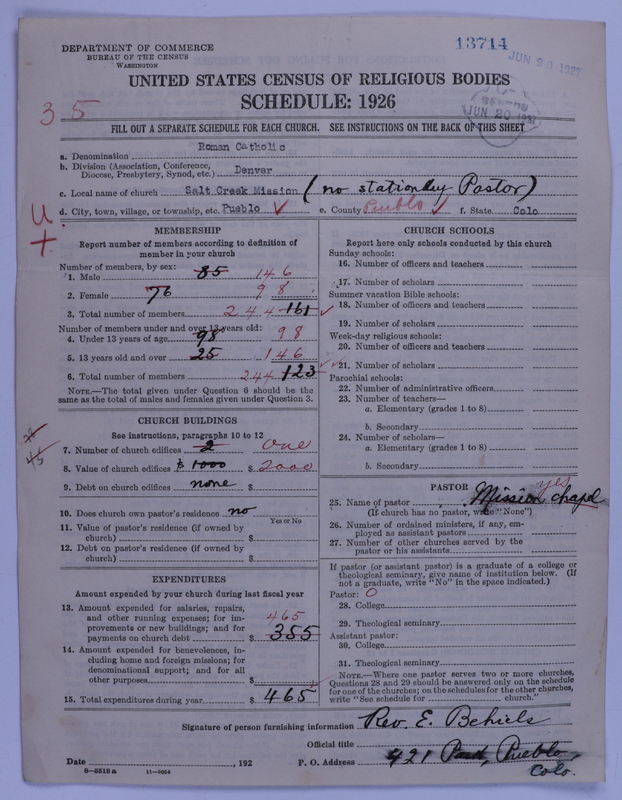 DEPARTMENT OF COMMERCE
BUREAU OF THE CENSUS
WASHINGTON
13714
JUN 20 1927
UNITED STATES CENSUS OF RELIGIOUS BODIES
SCHEDULE: 1926
JUN 20 1927
35
FILL OUT A SEPARATE SCHEDULE FOR EACH CHURCH. SEE INSTRUCTIONS ON THE BACK OF THIS SHEET
a. Denomination Roman Catholic
b. Division (Association, Conference, Diocese, Presbytery, Synod, etc.) Denver
c. Local name of church Salt Creek Mission (no stationary Pastor)
d. City, town, village, or township, etc. Pueblo ✓ e. County Pueblo ✓ f. State Colo
U
+
MEMBERSHIP
Report number of members according to definition of
member in your church
Number of members, by sex:
1. Male 85 146
2. Female 76 98
3. Total number of members 244 161
Number of members under and over 13 years old:
4. Under 13 years of age 98 98
5. 13 years old and over 25 146
6. Total number of members 244 123
NOTE.—The total given under Question 6 should be the
same as the total of males and females given under Question 3.
CHURCH BUILDINGS
See instructions, paragraphs 10 to 12
7. Number of church edifices 2 One
8. Value of church edifices $ 1000 $ 2000
9. Debt on church edifices none $
10. Does church own pastor's residence? no
Yes or No
11. Value of pastor's residence (if owned by
church) $
12. Debt on pastor's residence (if owned by
church) $
EXPENDITURES
Amount expended by your church during last fiscal year
13. Amount expended for salaries, repairs,
and other running expenses; for im-
provements or new buildings; and for
payments on church debt $ 465 355
14. Amount expended for benevolences, in-
cluding home and foreign missions; for
denominational support; and for all
other purposes $
15. Total expenditures during year $ 465
CHURCH SCHOOLS
Report here only schools conducted by this church
Sunday schools:
16. Number of officers and teachers
17. Number of scholars
Summer vacation Bible schools:
18. Number of officers and teachers
19. Number of scholars
Week-day religious schools:
20. Number of officers and teachers
21. Number of scholars
Parochial schools:
22. Number of administrative officers
23. Number of teachers—
a. Elementary (grades 1 to 8)
b. Secondary
24. Number of scholars—
a. Elementary (grades 1 to 8)
b. Secondary
PASTOR yes
25. Name of pastor Mission chapel
(If church has no pastor, write "None")
26. Number of ordained ministers, if any, em-
ployed as assistant pastors
27. Number of other churches served by the
pastor or his assistants
If pastor (or assistant pastor) is a graduate of a college or
theological seminary, give name of institution below. (If
not a graduate, write "No" in the space indicated.)
Pastor: 0
28. College
29. Theological seminary
Assistant pastor:
30. College
31. Theological seminary
NOTE.—Where one pastor serves two or more churches,
Questions 28 and 29 should be answered only on the schedule
for one of the churches; on the schedules for the other churches,
write "See schedule for church."
Signature of person furnishing information Rev. E. Behiels
Official title
Date , 192 P. O. Address 421 Park, Pueblo
Colo.
8—5518a 11—9004